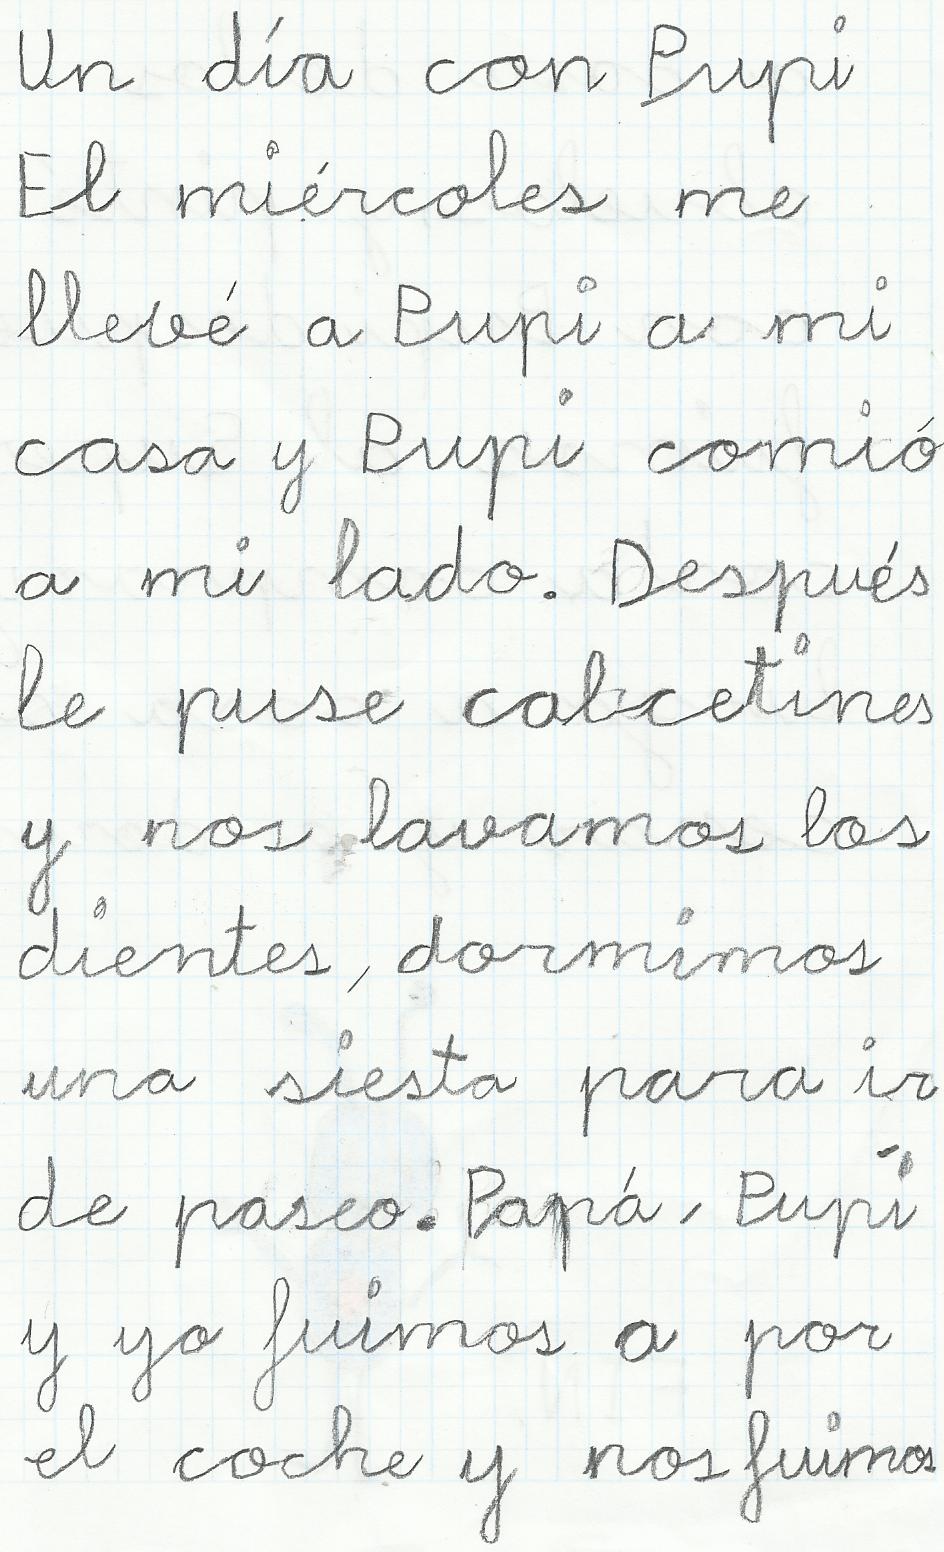 Un día con Pupi
El miércoles me
llevé a Pupi a mi
casa y Pupi comió
a mi lado. Después
le puse calcetines
y nos lavamos los
dientes, dormimos
una siesta para ir
de paseo. Papá, Pupi
y yo fuimos a por
el coche y nos fuimos